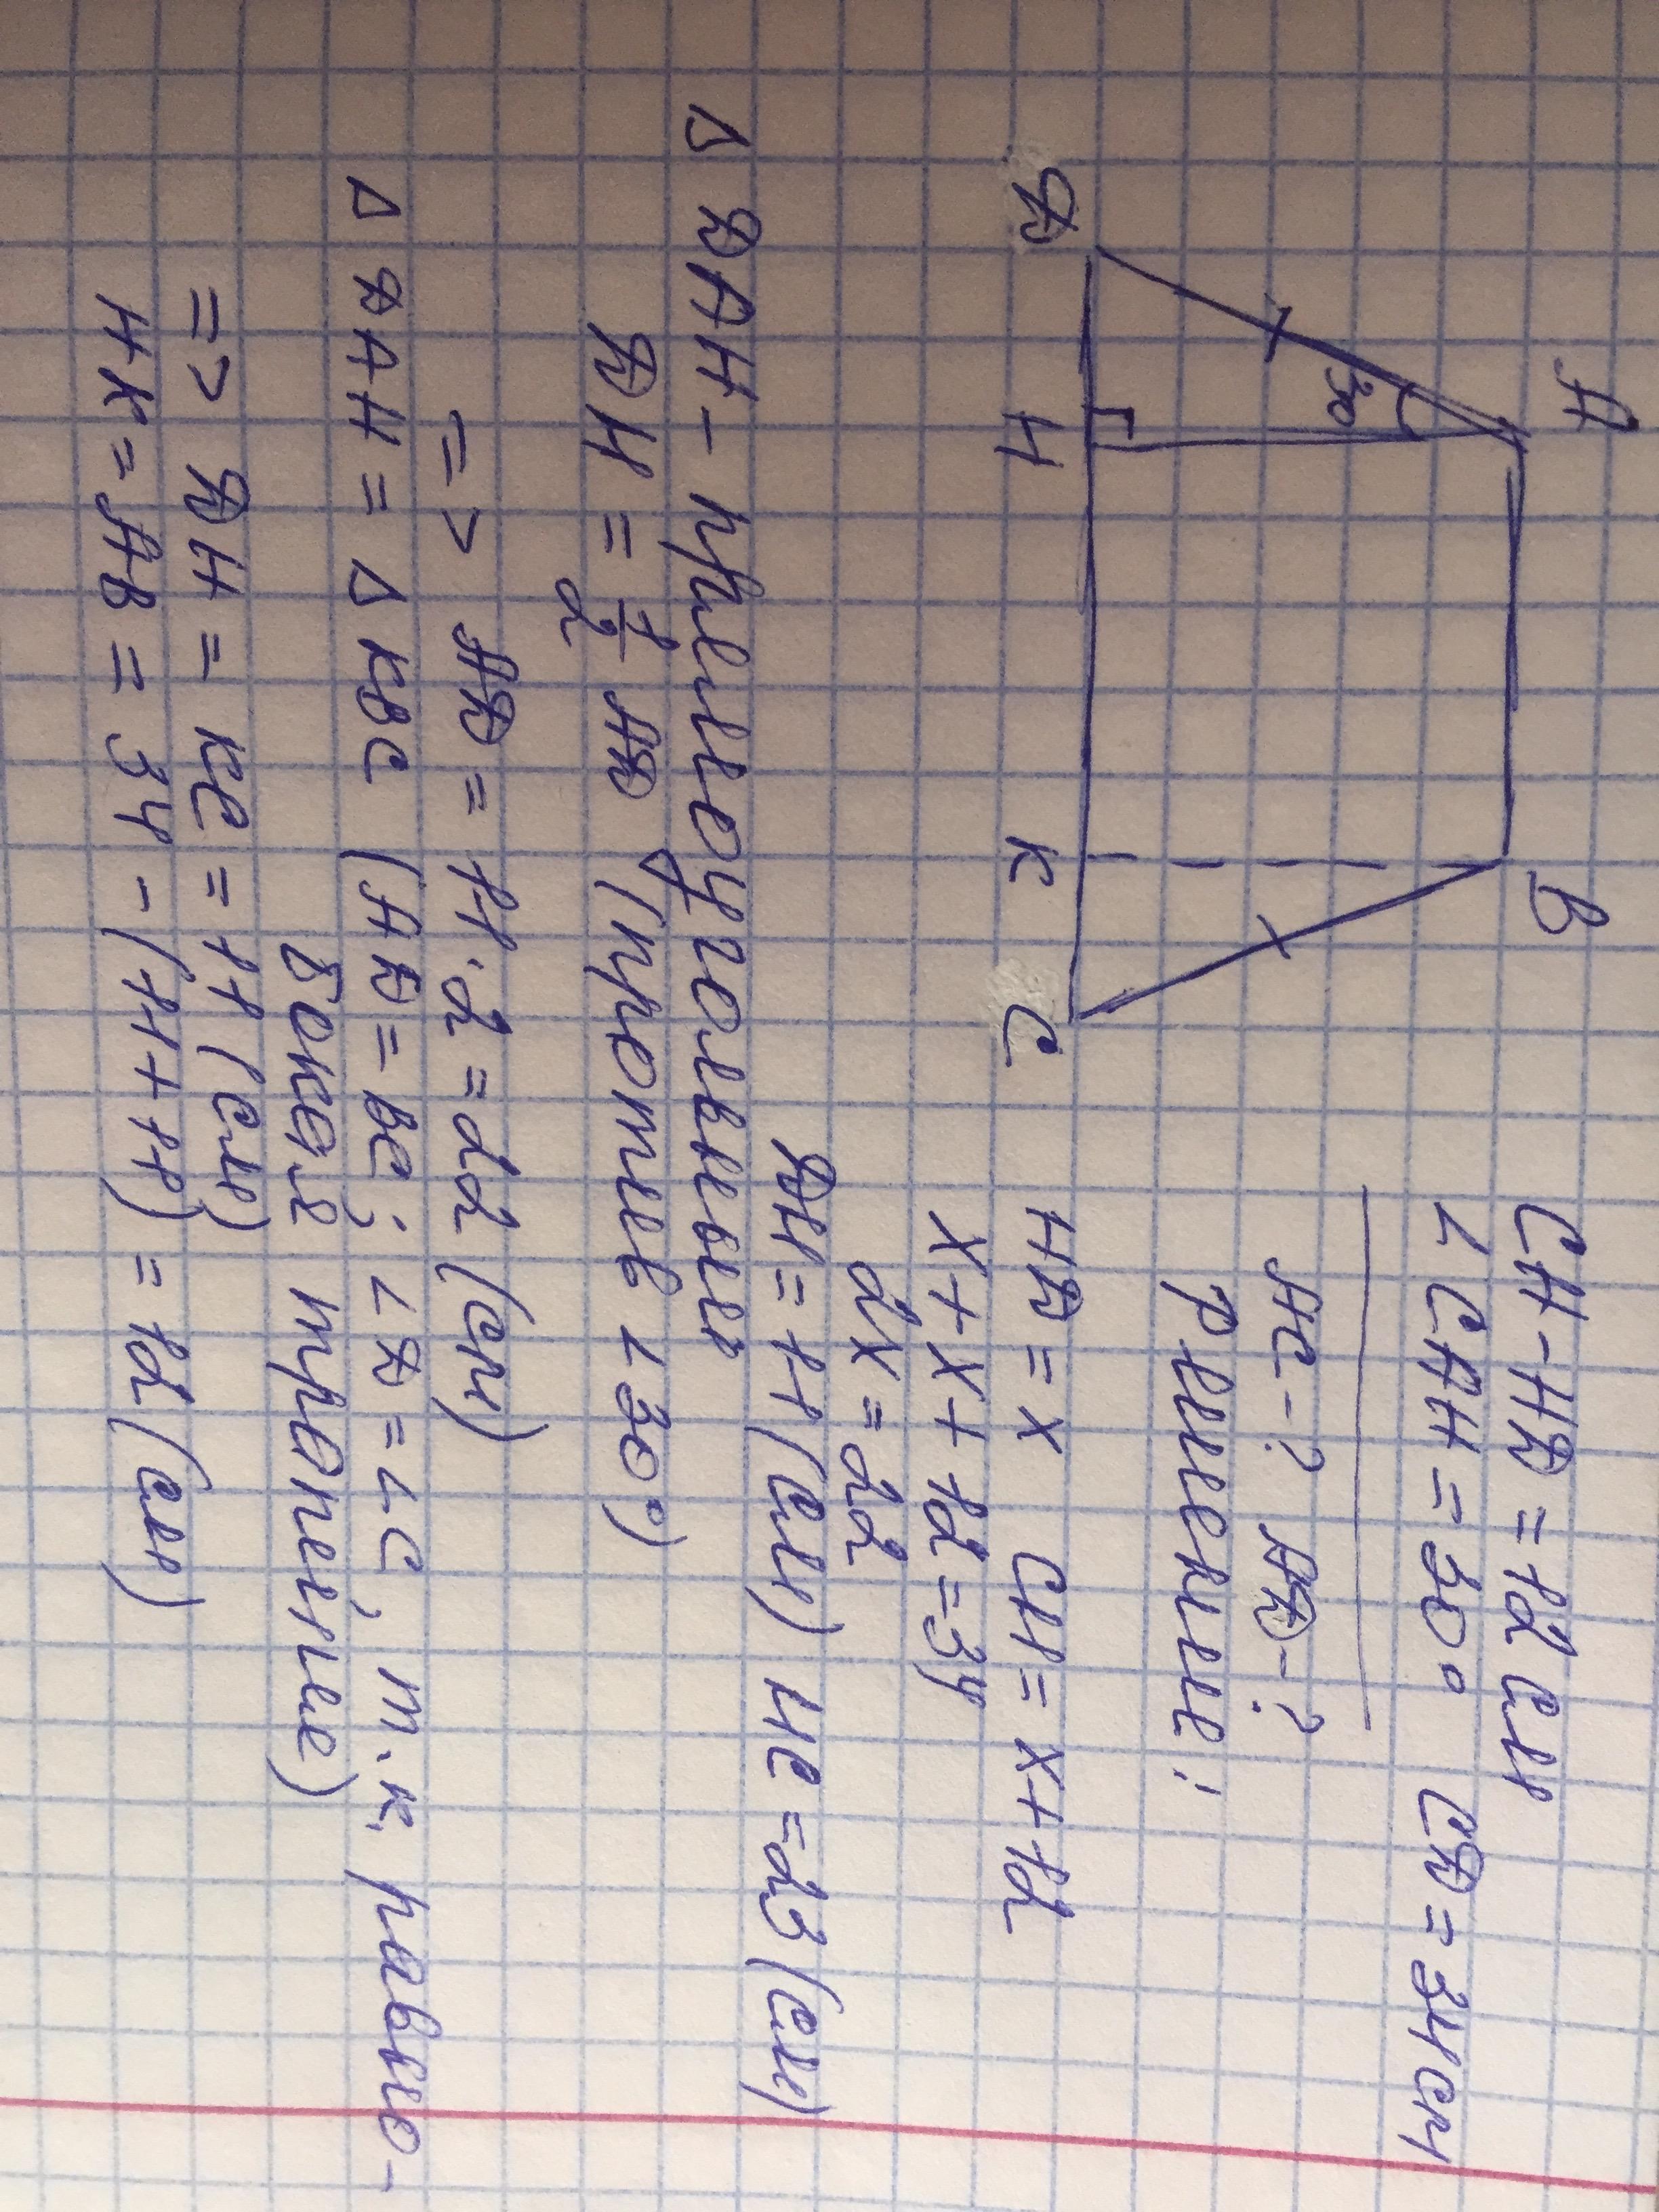 A B
30
D H K C
CH - HD = 12 см
∠CAH = 30° CD = 34 см
AC - ? AD - ?
Решение:
HD = x CH = x + 12
x + x + 12 = 34
2x = 22
DH = 11 (см) HC = 23 (см)
Δ DAH - прямоугольный
DH = 1/2 AD (против ∠30°)
2
=> AD = 11·2 = 22 (см)
Δ DAH = Δ KBC (AD = BC; ∠D = ∠C, т.к. равно-
бокая трапеция)
=> DH = KC = 11 (см)
HK = AB = 34 - (11 + 11) = 12 (см)